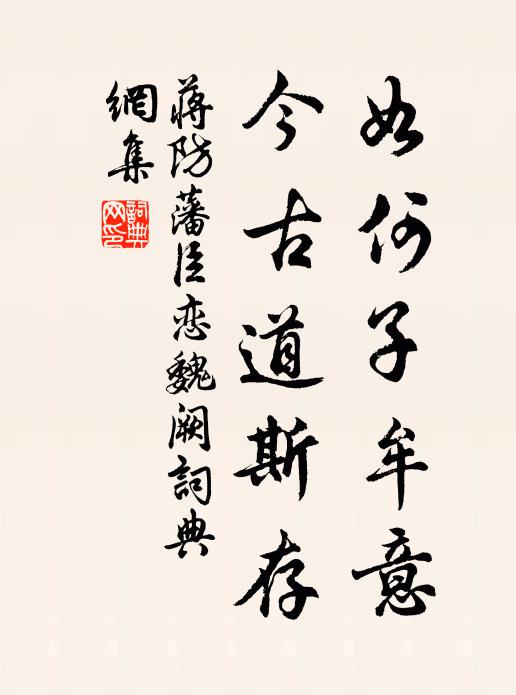 如何子牟意
今古道斯存
蔣防藩臣恋魏阙詞典
網集
詞典
网印